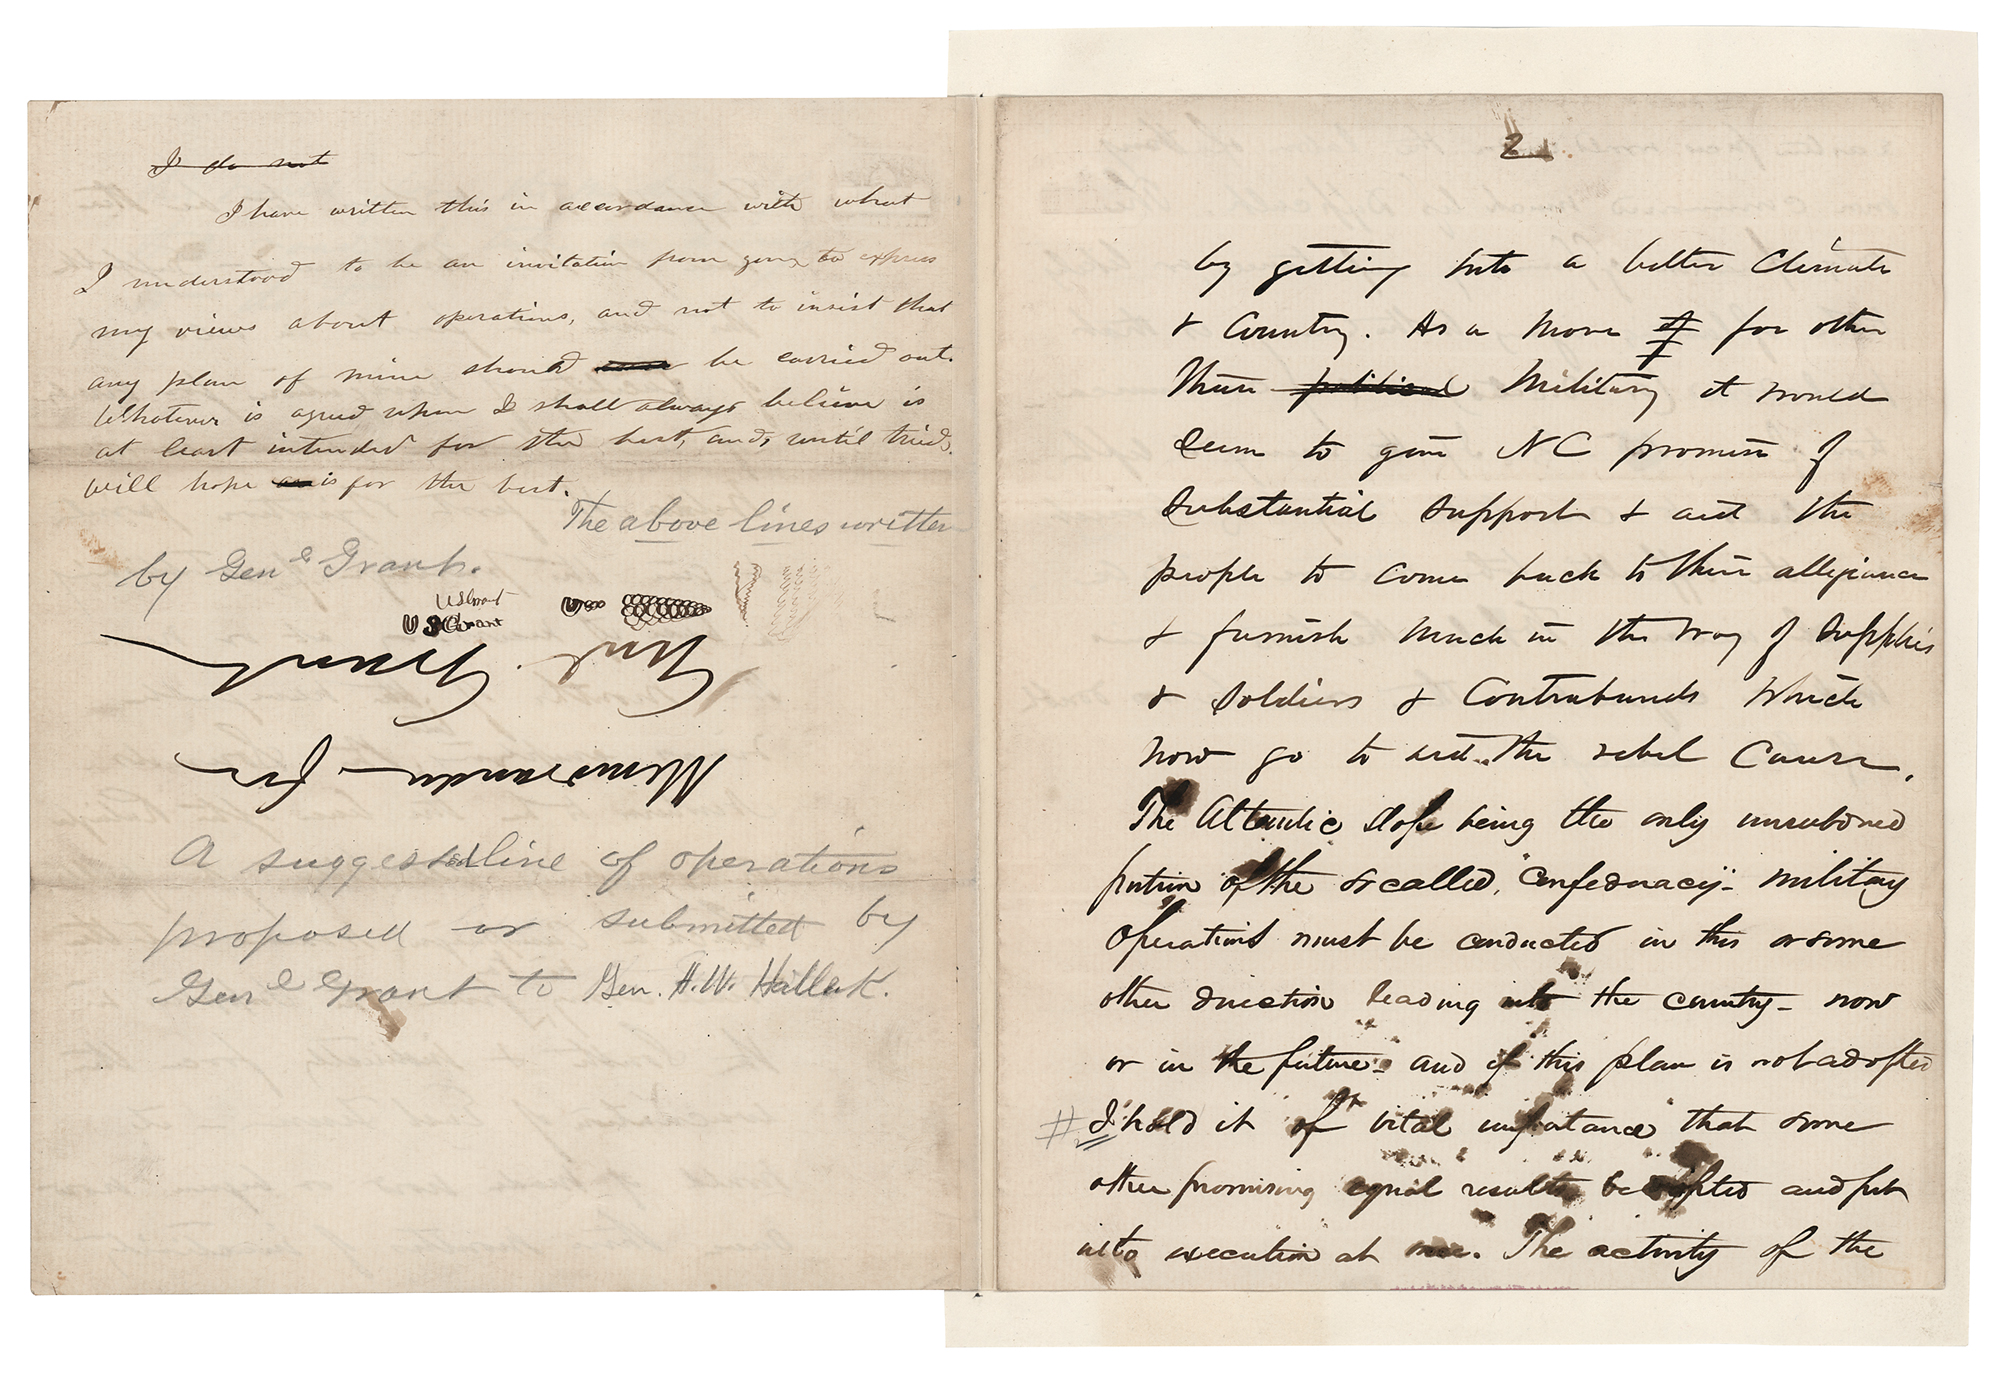 I do not
I have written this in accordance with what
I understood to be an invitation from you to express
my views about operations, and not to insist that
any plan of mine should be carried out.
Whatever is agreed upon I shall always believe is
at least intended for the best, and, until tried,
will hope is for the best.
The above lines written
by Genl Grant.
US Grant
US Grant
Grant
Memoranda - for
A suggested line of operations
proposed or submitted by
Genl Grant to Gen. H.W. Halleck.
2
by getting into a better Climate
& Country. As a move for other
than political Military it would
seem to give NC promise of
substantial support & aid the
people to come back to their allegiance
& furnish much in the way of supplies
& soldiers & Contrabands which
now go to aid the rebel Cause.
The Atlantic Slope being the only unsubdued
portion of the so called "Confederacy" - military
operations must be conducted in this or some
other direction leading into the country - now
or in the future - and if this plan is not adopted
# I hold it of vital importance that some
other promising equal results be adopted and put
into execution at once. The activity of the